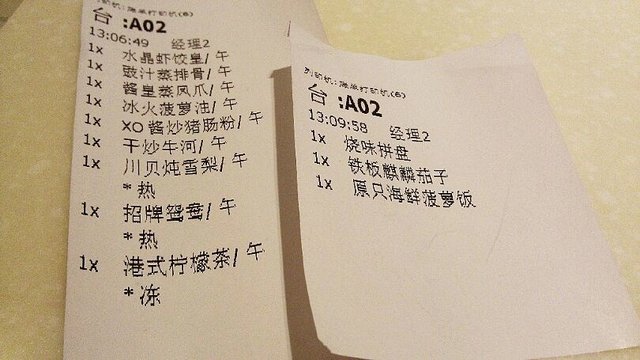 台 :A02
13:06:49 经理2
1x 水晶虾饺皇/ 午
1x 豉汁蒸排骨/ 午
1x 酱皇蒸凤爪/ 午
1x 冰火菠萝油/ 午
1x XO酱炒猪肠粉/ 午
1x 干炒牛河/ 午
1x 川贝炖雪梨/ 午
*热
1x 招牌鸳鸯/ 午
*热
1x 港式柠檬茶/ 午
*冻
台 :A02
13:09:58 经理2
1x 烧味拼盘
1x 铁板麒麟茄子
1x 原只海鲜菠萝饭